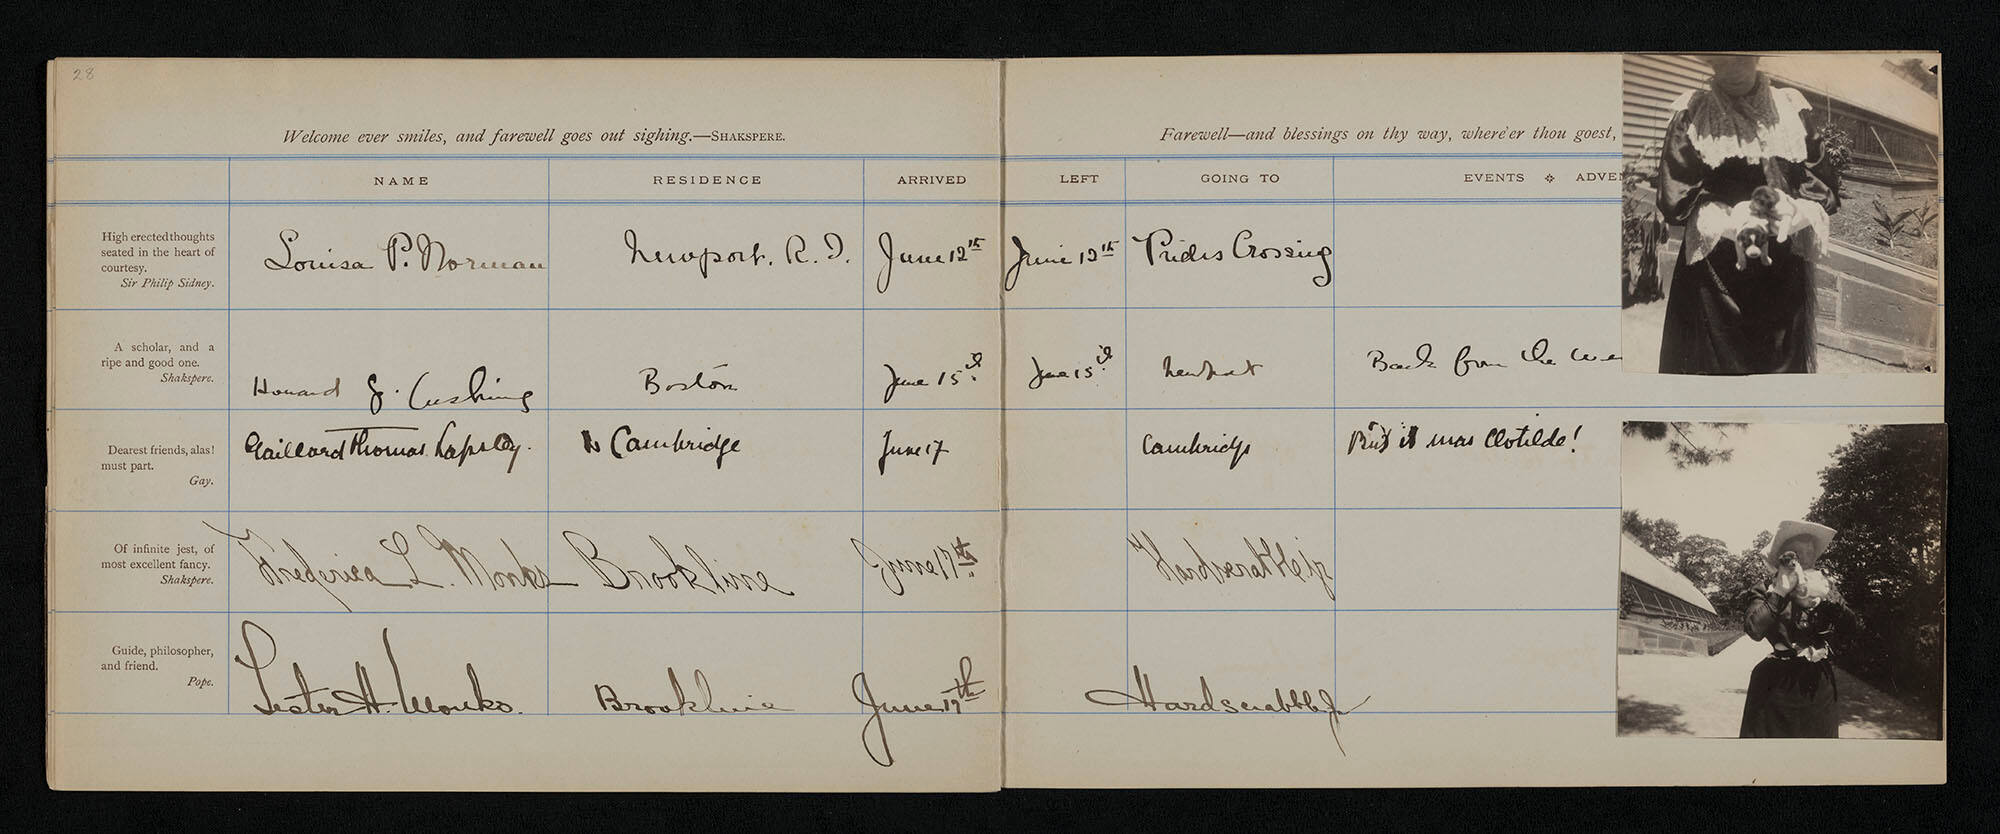 28
Welcome ever smiles, and farewell goes out sighing.—SHAKSPERE.
Farewell—and blessings on thy way, where'er thou goest,
NAME RESIDENCE ARRIVED LEFT GOING TO EVENTS ADVEN
High erected thoughts
seated in the heart of
courtesy.
Sir Philip Sidney.
Louisa P. Norman Newport. R. I. June 12th June 12th Prides Crossing
A scholar, and a
ripe and good one.
Shakspere.
Howard G. Cushing Boston June 15th June 15th Newport Back from the we
Dearest friends, alas!
must part.
Gay.
Gaillard Thomas Lapsley. Cambridge June 17 Cambridge But it was Clotilde!
Of infinite jest, of
most excellent fancy.
Shakspere.
Frederica L. Monks Brookline June 17th Hardscrabble jr
Guide, philosopher,
and friend.
Pope.
Lester H. Monks. Brookline June 17th Hardscrabble Jr